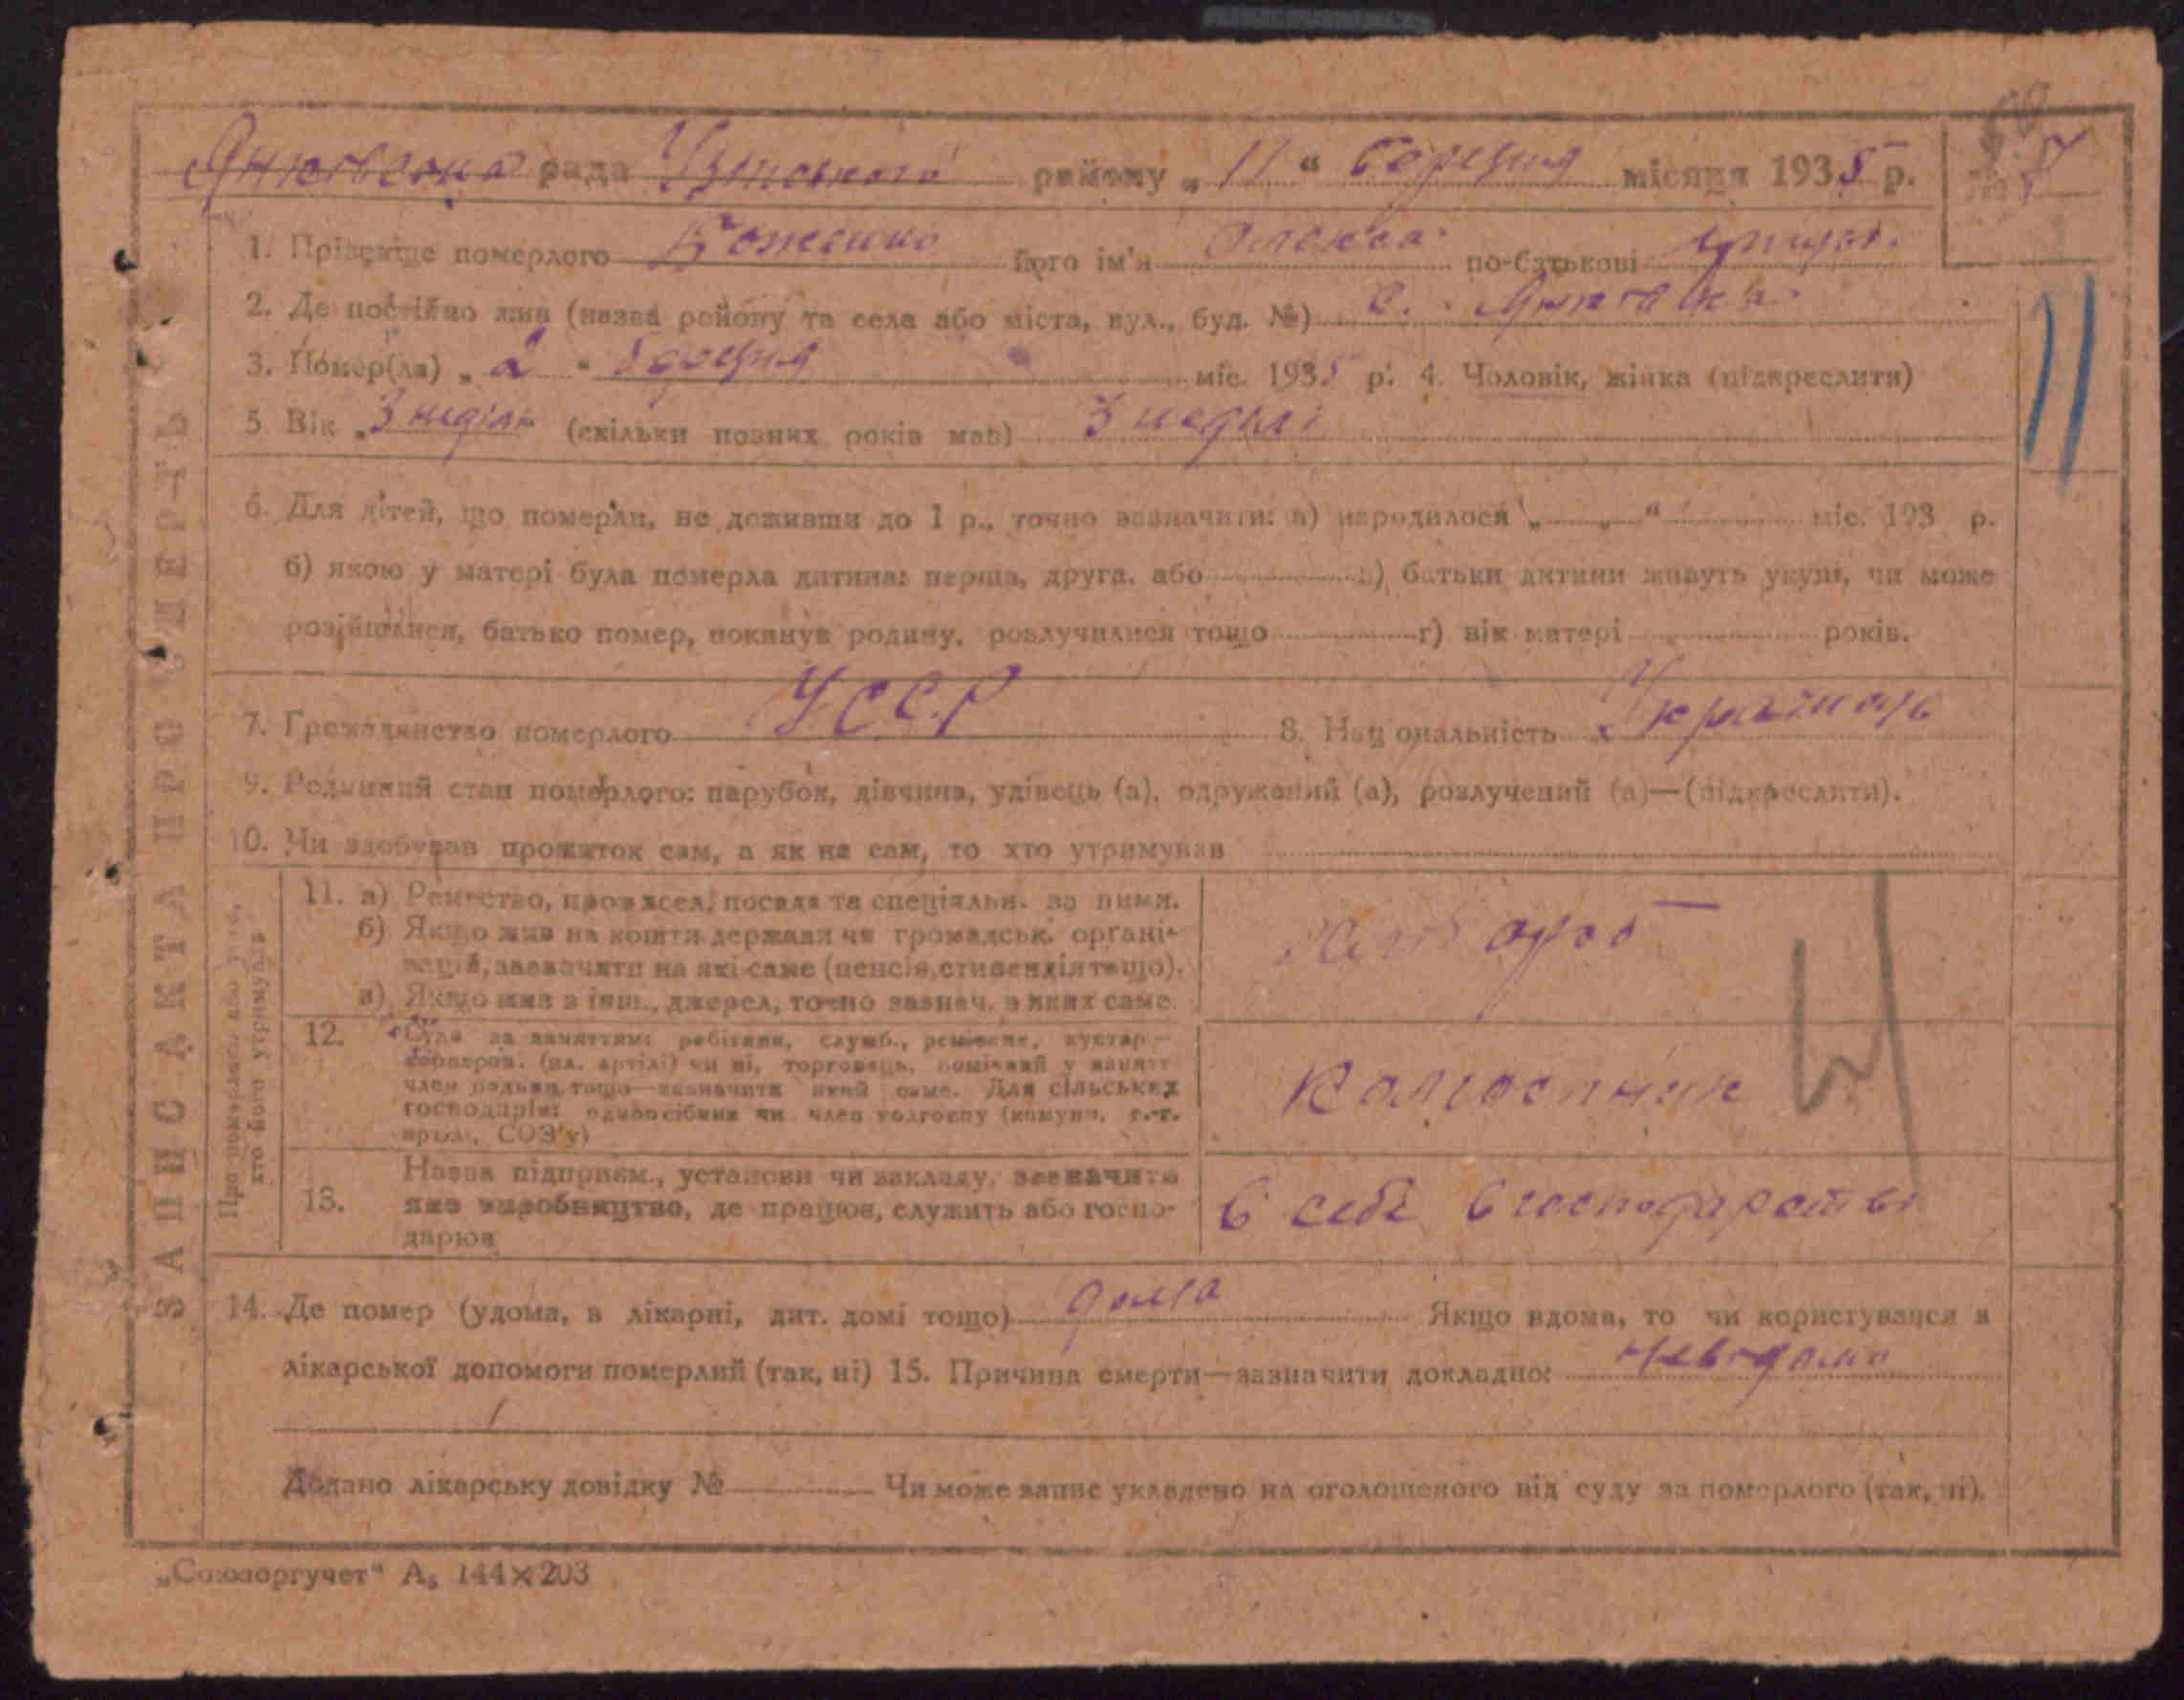 рада району „ 11 “ березня місяця 1935 р.
№ 7
1. Прізвище померлого Боженко його ім'я Олекса по-батькові
2. Де постійно жив (назва району та села або міста, вул., буд. №) с.
3. Помер(ла) „ 2 “ березня міс. 1935 р. 4. Чоловік, жінка (підкреслити)
5. Вік „ 3 неділі (скільки повних років мав) 3 неділі
11
6. Для дітей, що померли, не доживши до 1 р., точно зазначити: а) народилося „ “ міс. 193 р.
б) якою у матері була померла дитина: перша, друга, або в) батьки дитини живуть укупі, чи може
розійшлися, батько помер, покинув родину, розлучилися тощо г) вік матері років.
7. Громадянство померлого УССР 8. Національність Украінець
9. Родинний стан померлого: парубок, дівчина, удівець (а), одружений (а), розлучений (а)—(підкреслити).
10. Чи здобував прожиток сам, а як не сам, то хто утримував
Про померлого або того,
хто його утримував
11. а) Ремество, промисел, посада та спеціяльн. за ними.
б) Якщо жив на кошти держави чи громадськ. організацій, зазначити на які саме (пенсія, стипендія тощо).
в) Якщо жив з інш., джерел, точно зазнач. з яких саме.
12. за заняттям: робітник, служб., ремісник, кустар—
коопером. (чл. артілі) чи ні, торговець, помічний у занятт
член родини тощо—зазначити який саме. Для сільських
господарів: одноосібник чи член колгоспу (комуни, с.-г.
артілі, СОЗ'у)
Колгоспник
13. Назва підприєм., установи чи закладу, зазначити
яке виробництво, де працює, служить або госпо-
дарює
в себе в господарстві
14. Де помер (удома, в лікарні, дит. домі тощо) дома Якщо вдома, то чи користувався з
лікарської допомоги померлий (так, ні) 15. Причина смерти—зазначити докладно: невідомо
Додано лікарську довідку № Чи може запис укладено на оголошеного від суду за померлого (так, ні).
ЗАПИС АКТА ПРО СМЕРТЬ
„Союзоргучет“ А₅ 144×203